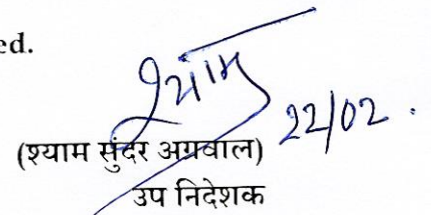 ed.
श्याम 22/02.
(श्याम सुंदर अग्रवाल)
उप निदेशक